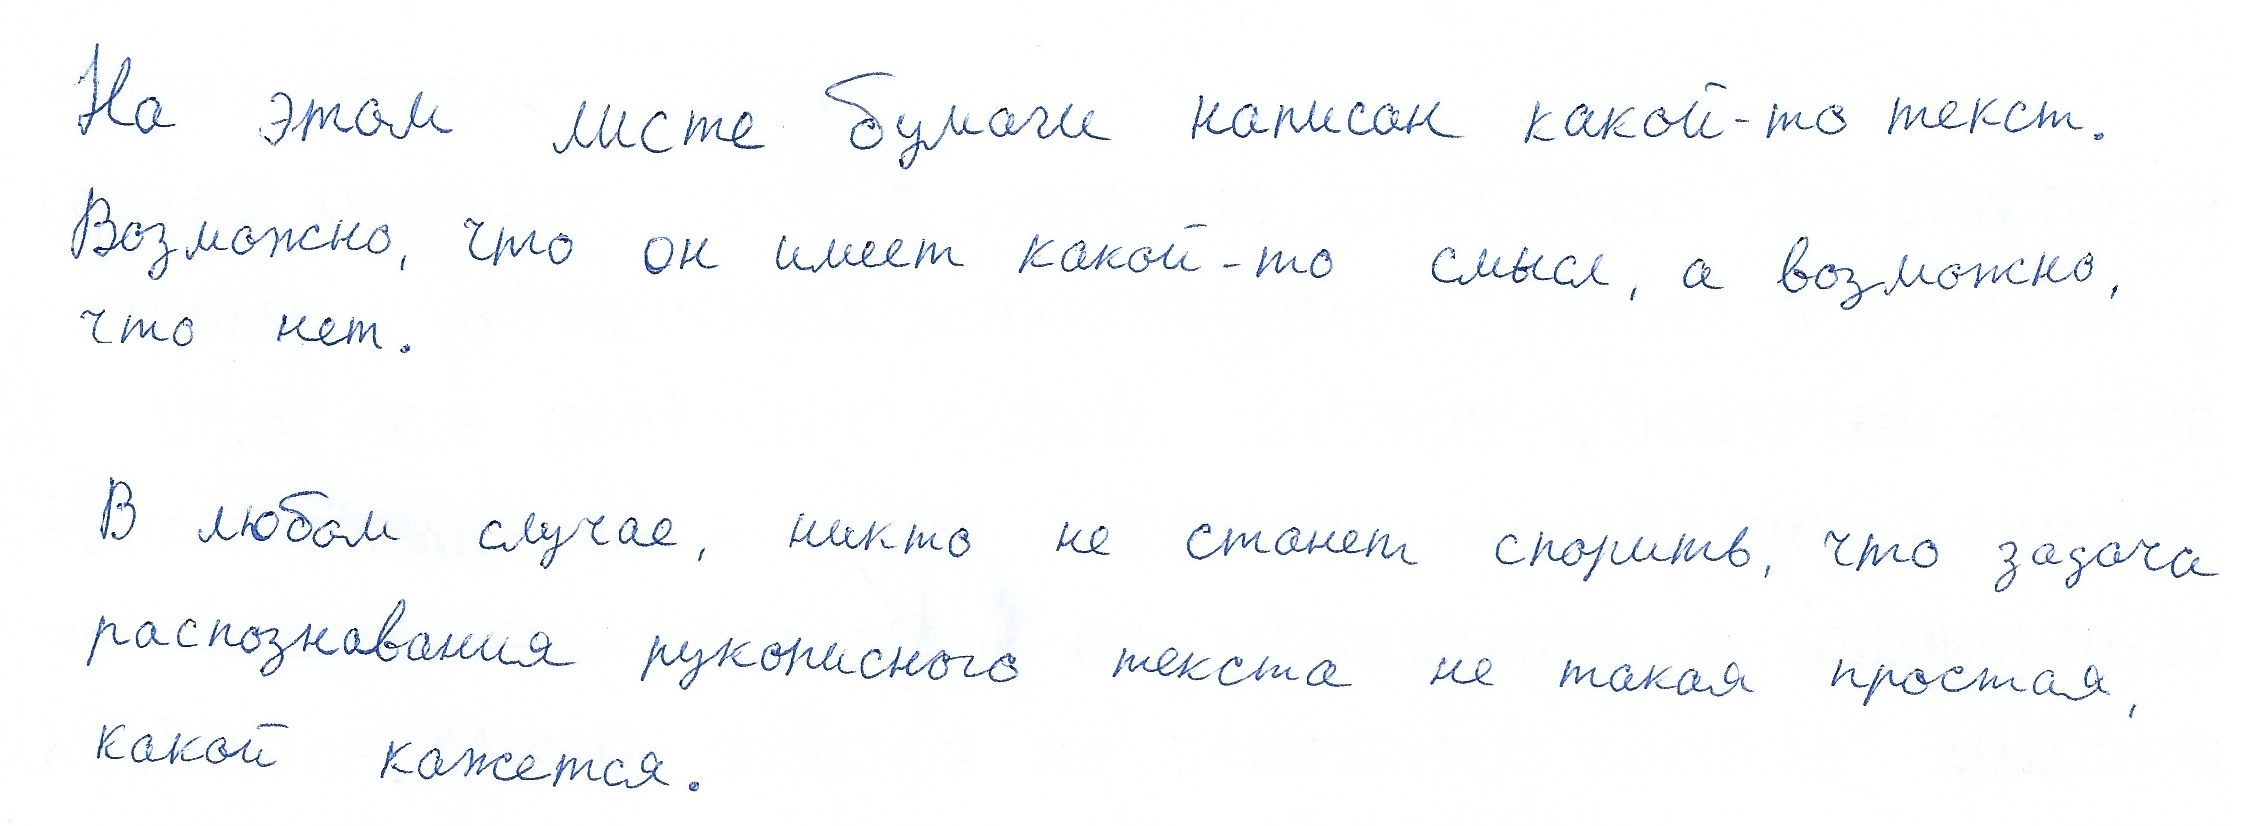 На этом листе бумаги написан какой-то текст.
Возможно, что он имеет какой-то смысл, а возможно,
что нет.
В любом случае, никто не станет спорить, что задача
распознавания рукописного текста не такая простая,
какой кажется.